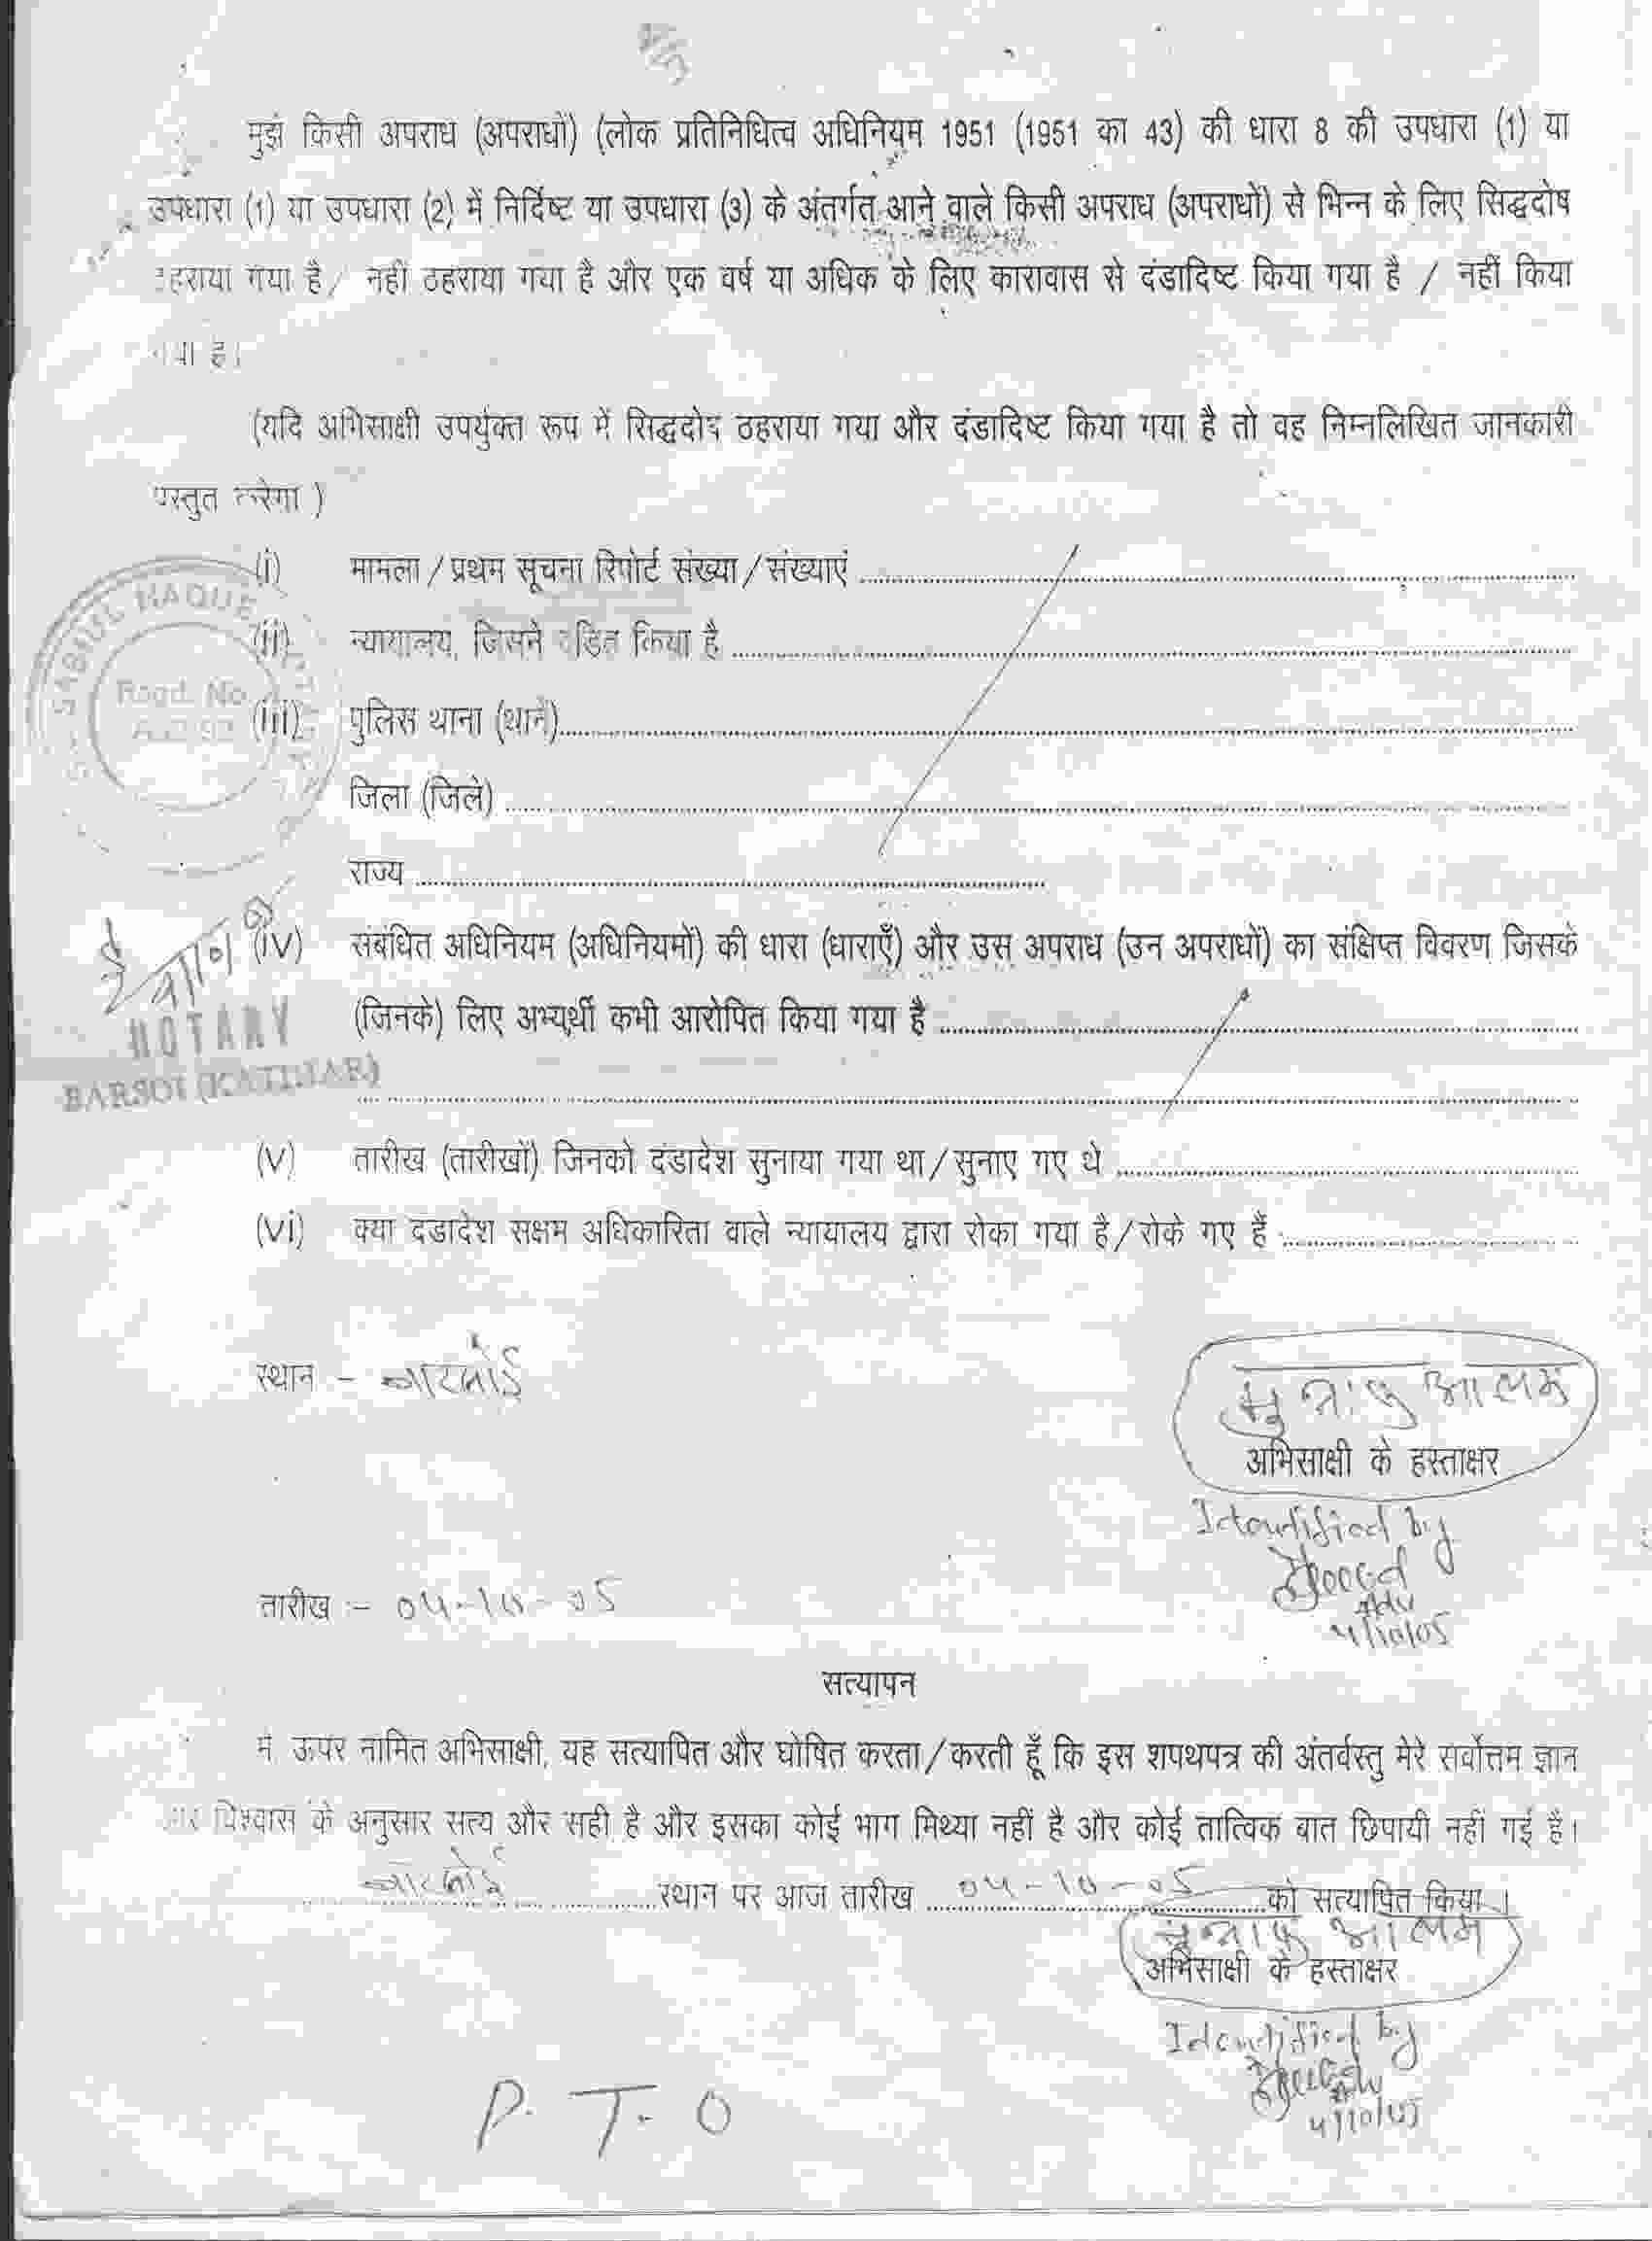 मुझे किसी अपराध (अपराधों) (लोक प्रतिनिधित्व अधिनियम 1951 (1951 का 43) की धारा 8 की उपधारा (1) या
उपधारा (1) या उपधारा (2) में निर्दिष्ट या उपधारा (3) के अंतर्गत आने वाले किसी अपराध (अपराधों) से भिन्न के लिए सिद्धदोष
ठहराया गया है / नहीं ठहराया गया है और एक वर्ष या अधिक के लिए कारावास से दंडादिष्ट किया गया है / नहीं किया
गया है।
(यदि अभिसाक्षी उपर्युक्त रूप में सिद्धदोष ठहराया गया और दंडादिष्ट किया गया है तो वह निम्नलिखित जानकारी
प्रस्तुत करेगा)
(i) मामला / प्रथम सूचना रिपोर्ट संख्या / संख्याएं
(ii) न्यायालय, जिसने दंडित किया है
(iii) पुलिस थाना (थाने)
जिला (जिले)
राज्य
SABIUL HAQUE
Regd. No.
(iv) संबंधित अधिनियम (अधिनियमों) की धारा (धाराएँ) और उस अपराध (उन अपराधों) का संक्षिप्त विवरण जिसके
(जिनके) लिए अभ्यर्थी कभी आरोपित किया गया है
NOTARY
BARSOI (KATIHAR)
(v) तारीख (तारीखों) जिनको दंडादेश सुनाया गया था / सुनाए गए थे
(vi) क्या दंडादेश सक्षम अधिकारिता वाले न्यायालय द्वारा रोका गया है / रोके गए हैं
स्थान - बारसोई
आलम
अभिसाक्षी के हस्ताक्षर
Identified by
4/10/05
तारीख :- 04-10-05
सत्यापन
मैं, ऊपर नामित अभिसाक्षी, यह सत्यापित और घोषित करता / करती हूँ कि इस शपथपत्र की अंतर्वस्तु मेरे सर्वोत्तम ज्ञान
और विश्वास के अनुसार सत्य और सही है और इसका कोई भाग मिथ्या नहीं है और कोई तात्विक बात छिपायी नहीं गई है।
बारसोई स्थान पर आज तारीख 04-10-05 को सत्यापित किया।
आलम
अभिसाक्षी के हस्ताक्षर
Identified by
4/10/05
P. T. O